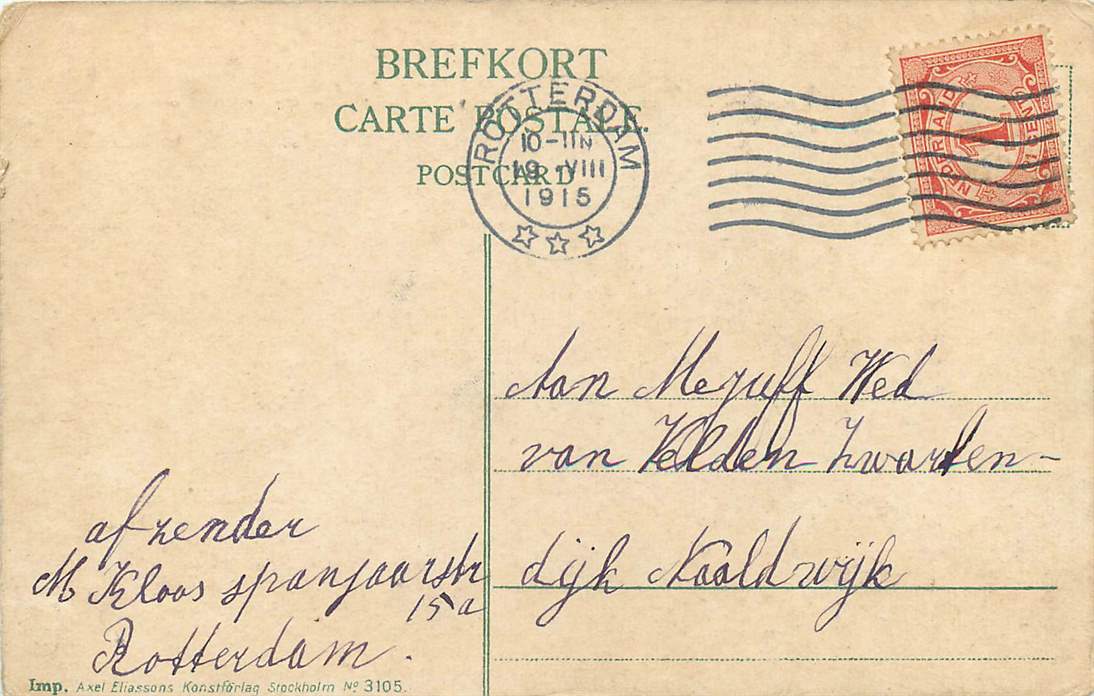 BREFKORT
CARTE POSTALE.
POSTCARD
ROTTERDAM
10-11N
19 VIII
1915
NEDERLAND
1
CENT
Aan Mejuff Wed
van Velden Zwarten-
dijk Naaldwijk
afzender
M Kloos spanjaarstr
15a
Rotterdam.
Imp. Axel Eliassons Konstförlag Stockholm No 3105.